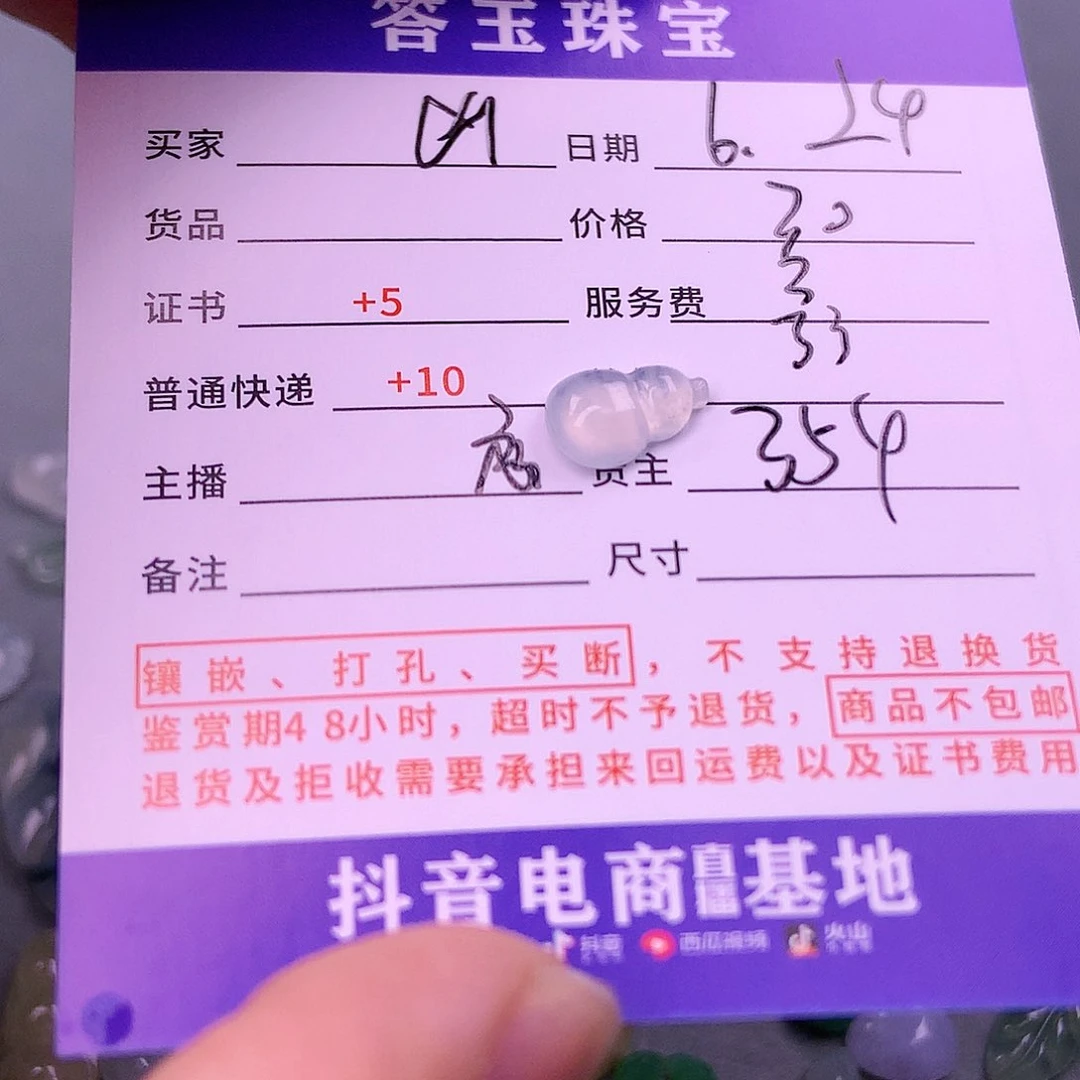 答玉珠宝
买家 日期 6. 24
货品 价格 30
证书 +5 服务费 33
普通快递 +10
主播 货主 354
备注 尺寸
镶嵌、打孔、买断，不支持退换货
鉴赏期48小时，超时不予退货，商品不包邮
退货及拒收需要承担来回运费以及证书费用
抖音电商直播基地
抖音 西瓜视频 火山